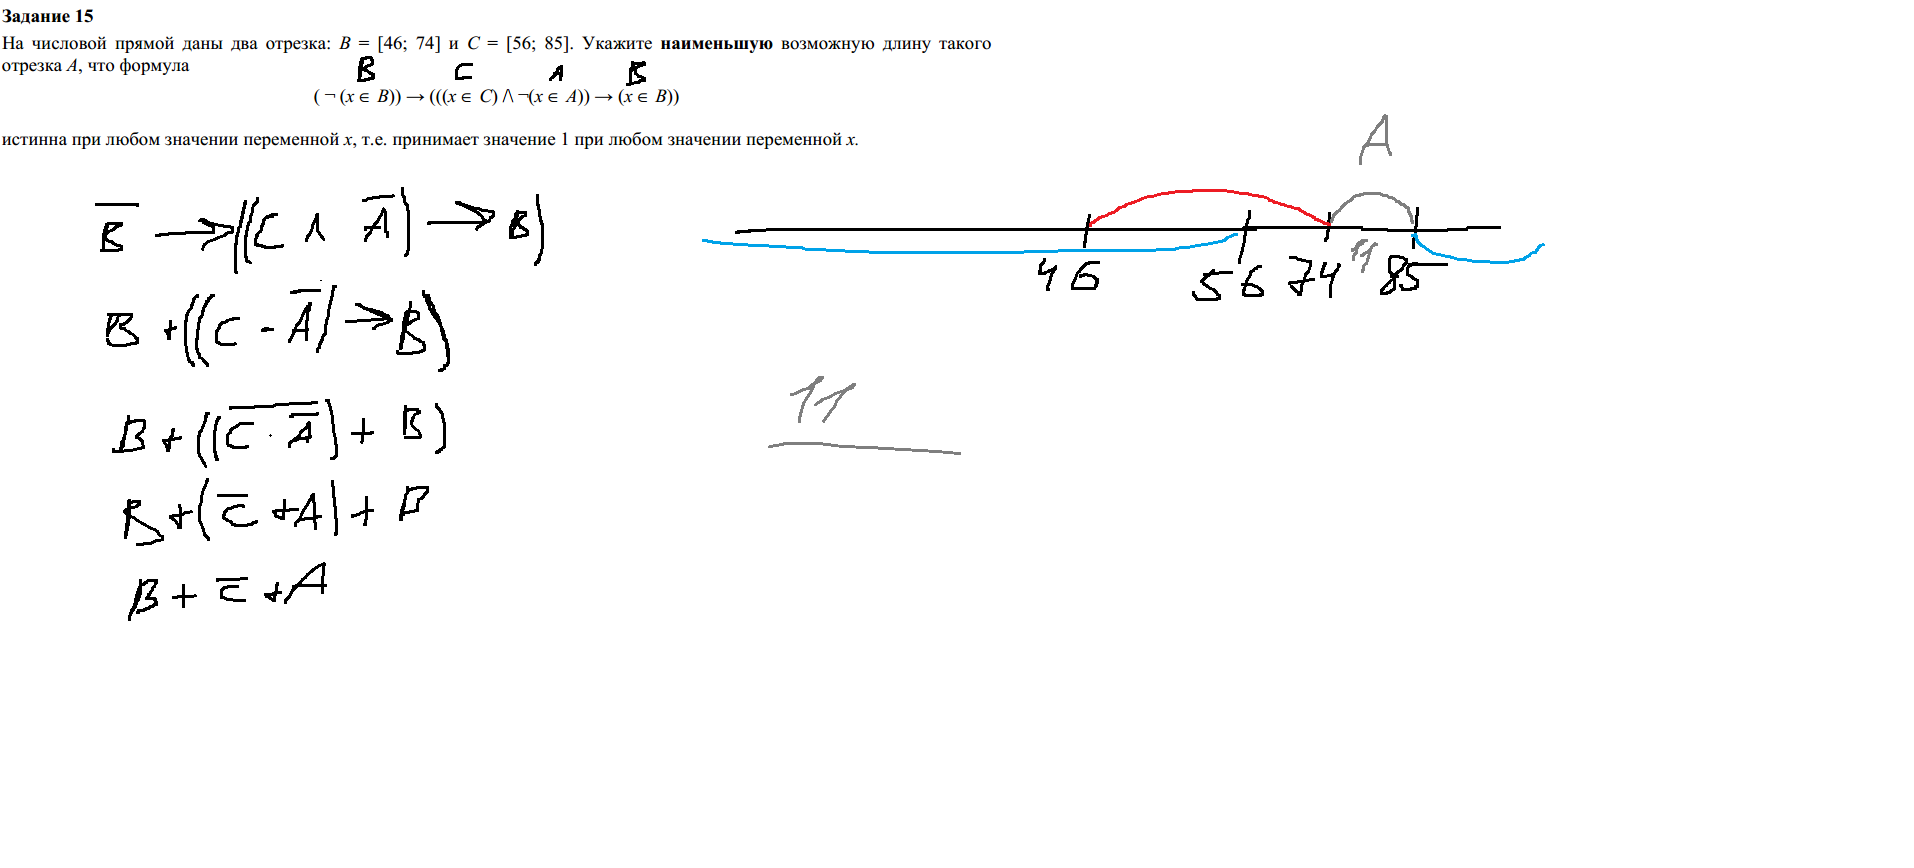 Задание 15
На числовой прямой даны два отрезка: B = [46; 74] и C = [56; 85]. Укажите наименьшую возможную длину такого
отрезка A, что формула
B C A B
( ¬ (x ∈ B)) → (((x ∈ C) /\ ¬(x ∈ A)) → (x ∈ B))
истинна при любом значении переменной x, т.е. принимает значение 1 при любом значении переменной x.
A
B̅ → ((C ∧ A̅) → B)
46 56 74 11 85
B + ((C - A̅) → B)
11
B + ((\overline{C · A̅}) + B)
B + (C̅ + A) + B
B + C̅ + A